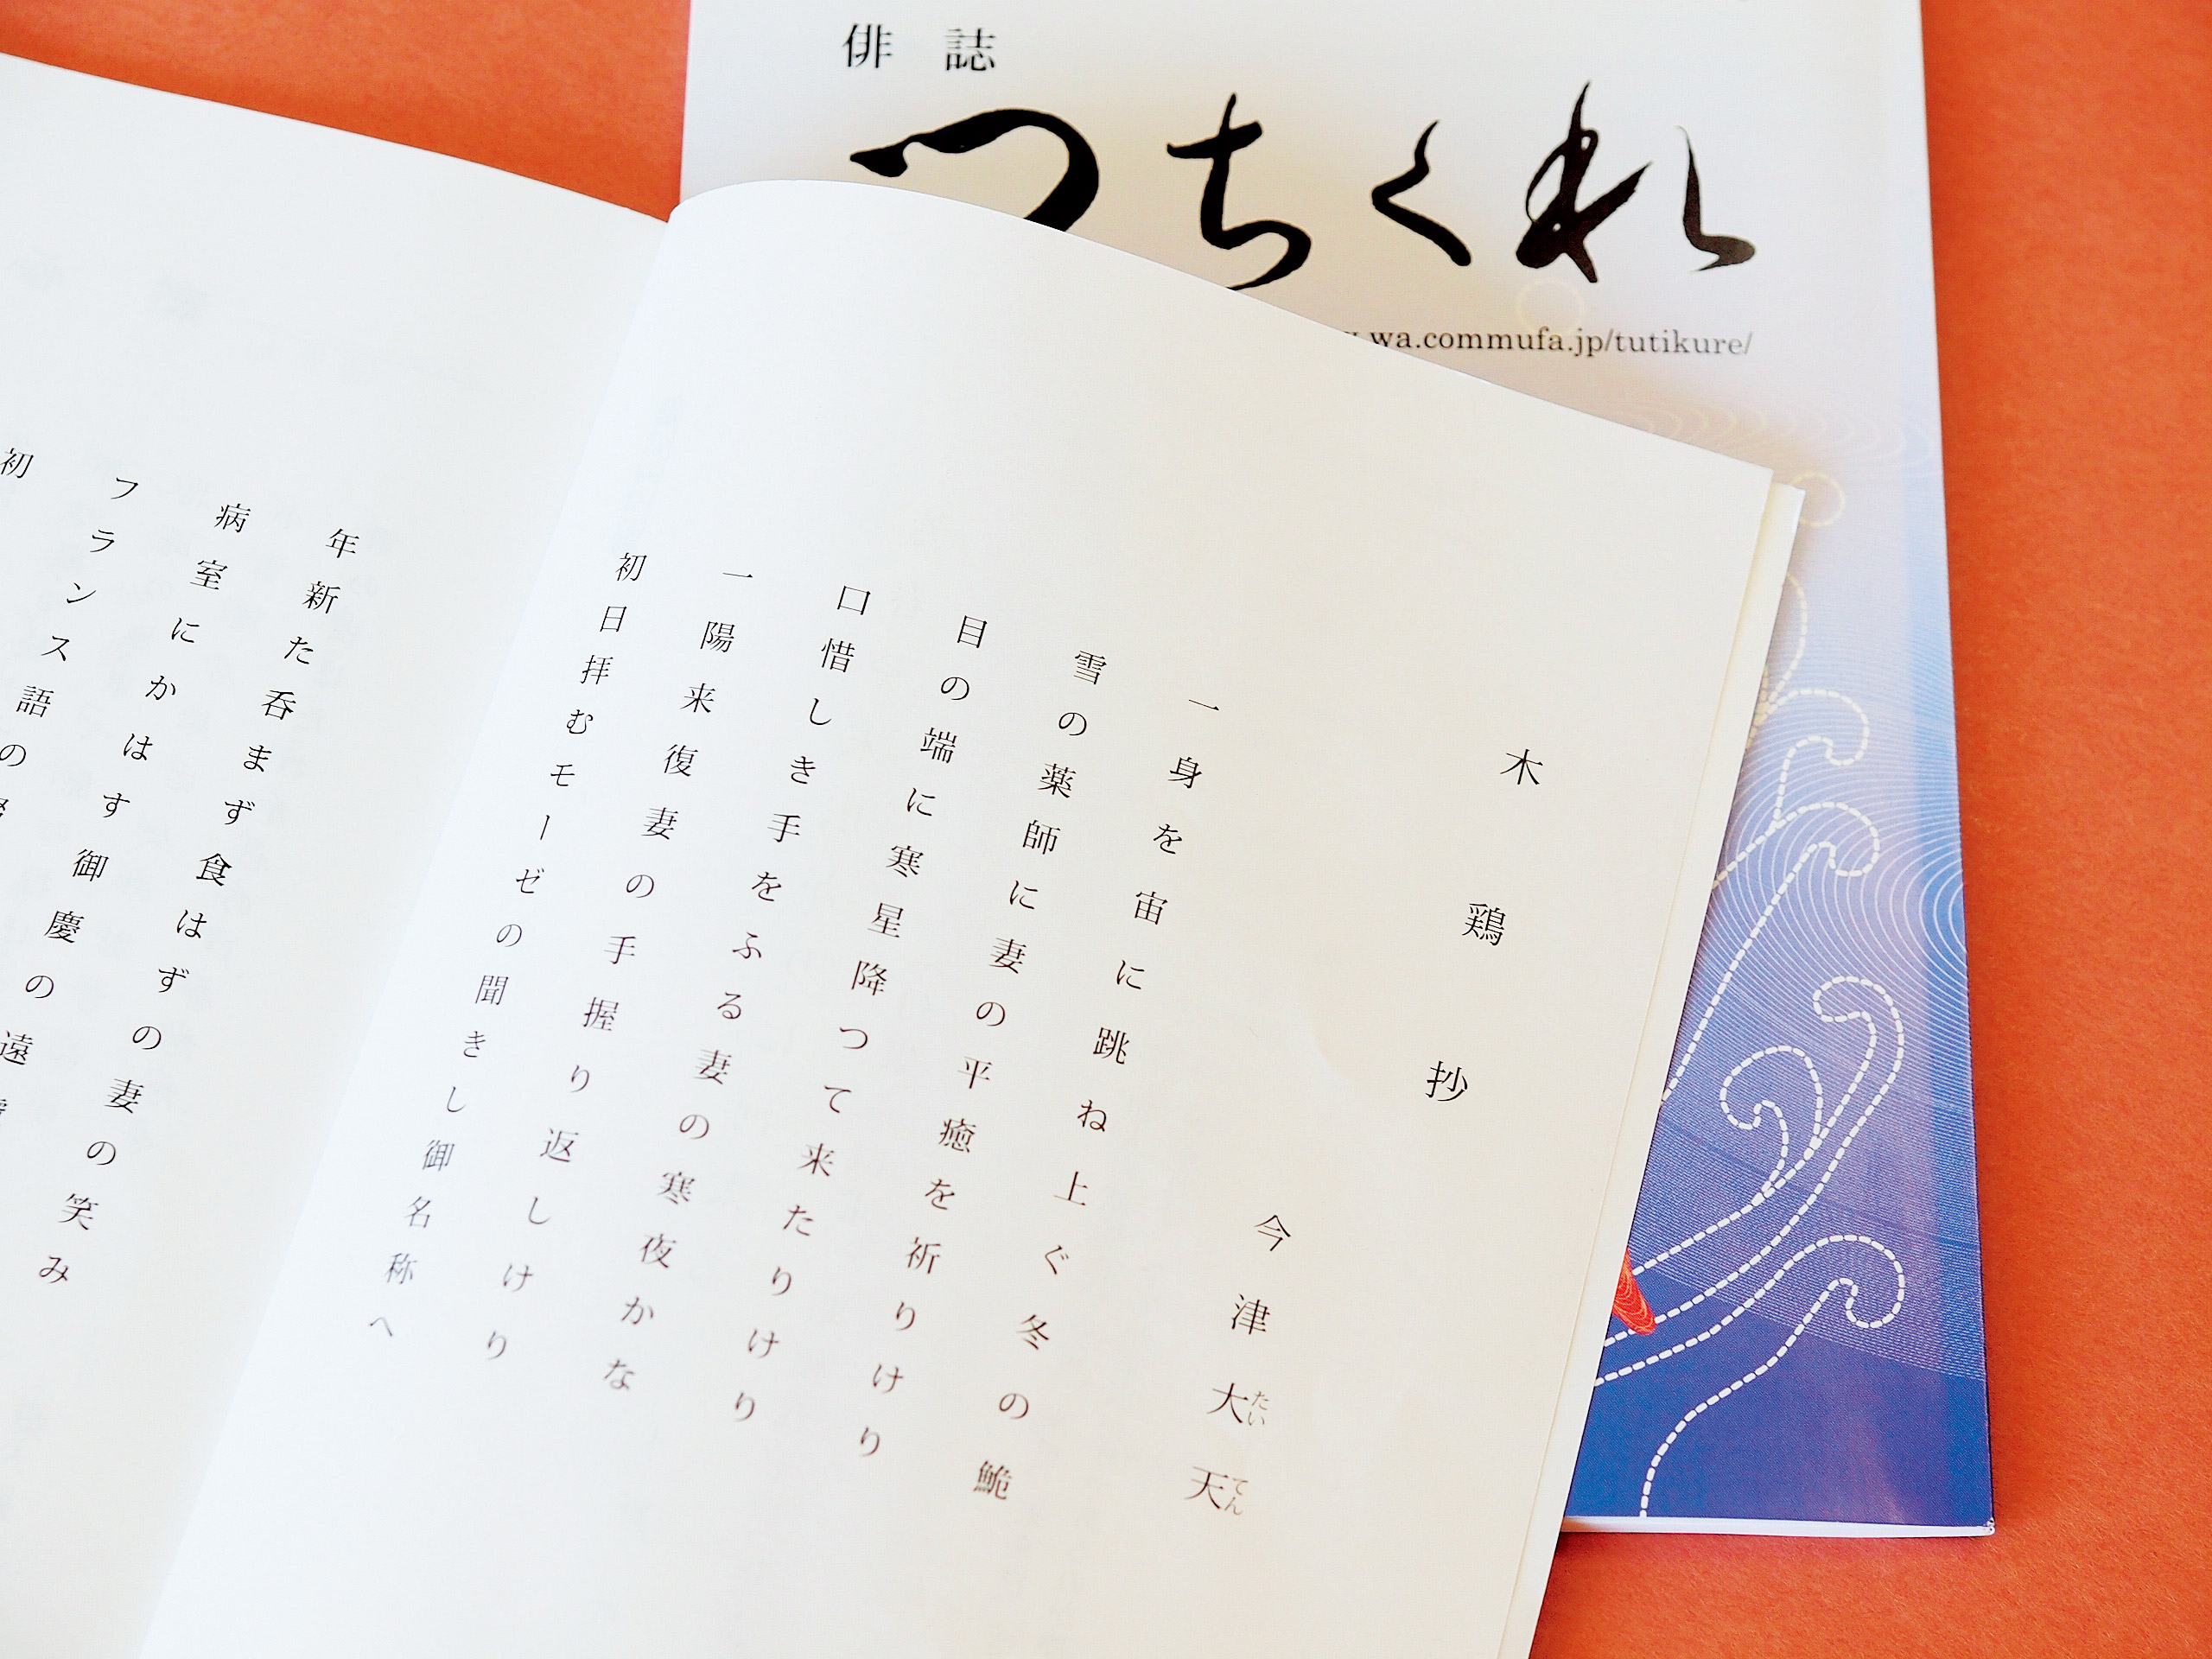 俳誌
つちくれ
wa.commufa.jp/tutikure/
木鶏抄
今津大天
たいてん
一身を宙に跳ね上ぐ冬の鮠
雪の薬師に妻の平癒を祈りけり
目の端に寒星降つて来たりけり
口惜しき手をふる妻の寒夜かな
一陽来復妻の手握り返しけり
初日拝むモーゼの聞きし御名称へ
年新た呑まず食はずの妻の笑み
病室にかはす御慶の遠
フランス語の
初